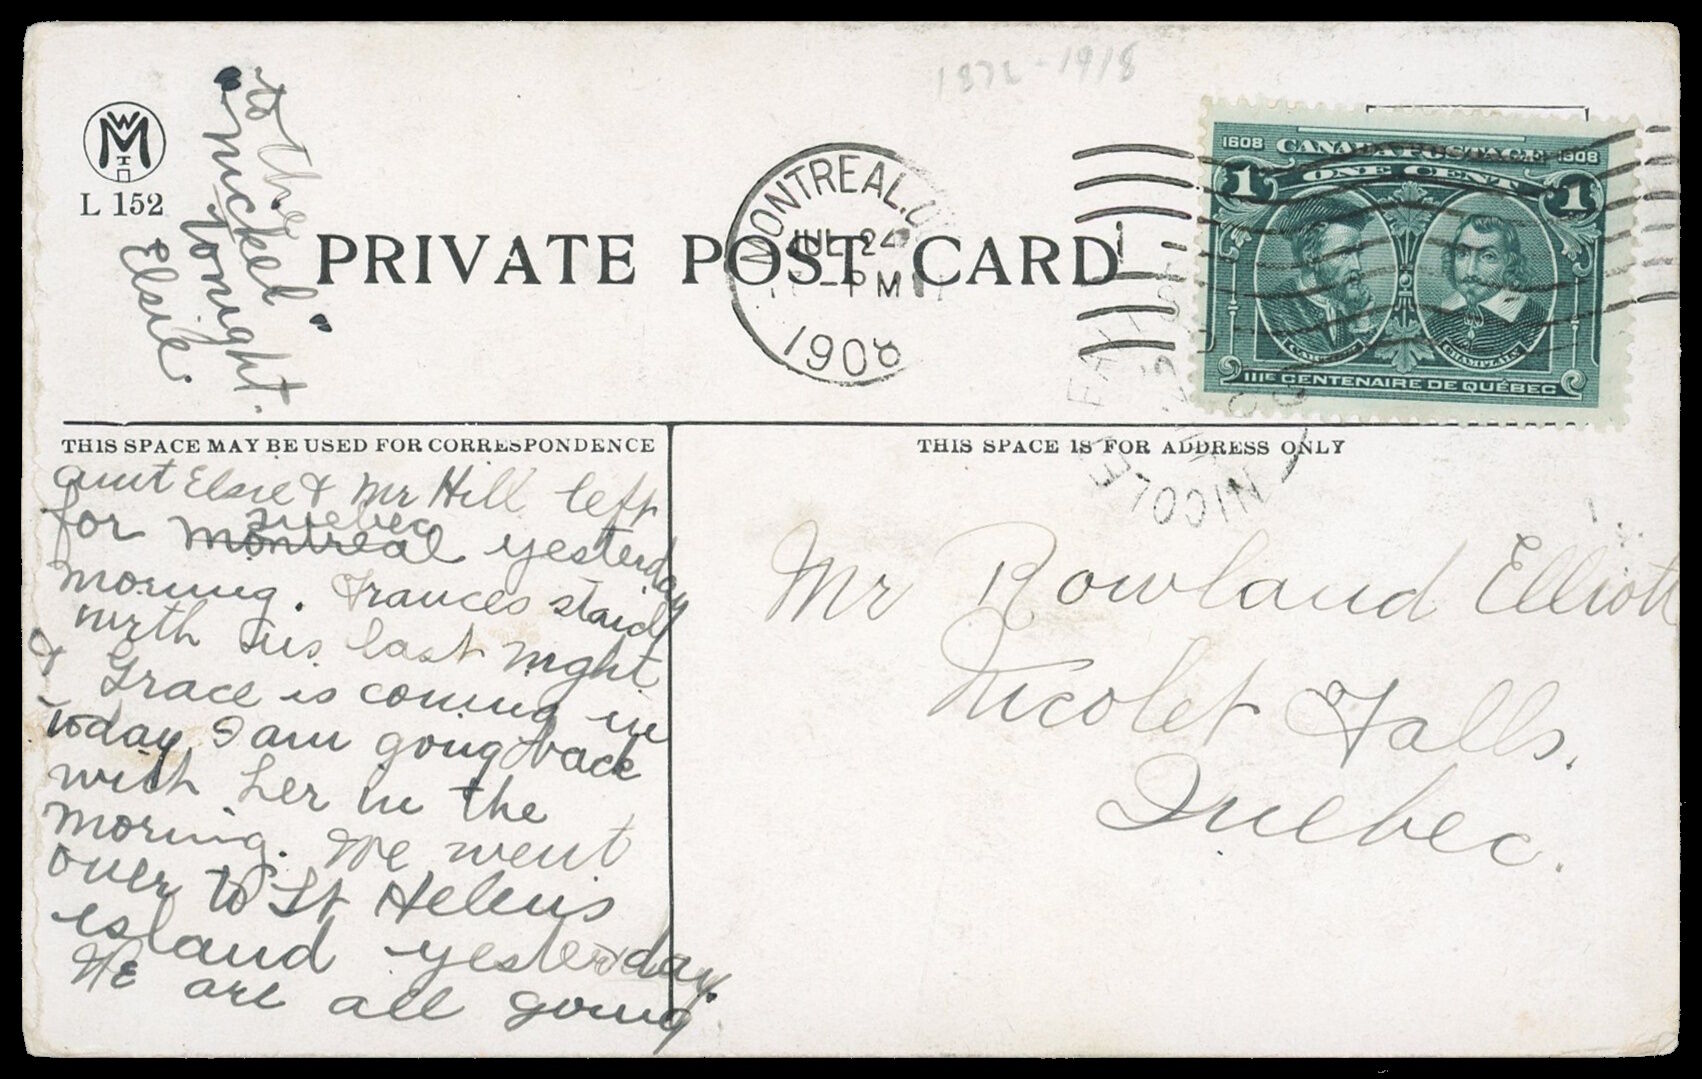 1872-1918
WM
T
L 152
PRIVATE POST CARD
MONTREAL.
JUL 24
PM
1908
1608 CANADA POSTAGE 1908
1 ONE CENT 1
CARTIER CHAMPLAIN
IIIE CENTENAIRE DE QUÉBEC
NICOLET
THIS SPACE MAY BE USED FOR CORRESPONDENCE
THIS SPACE IS FOR ADDRESS ONLY
aunt Elsie & Mr Hill left
Quebec
for Montreal yesterday
morning. Frances staid
with us last night
& Grace is coming in
today, I am going back
with her in the
morning. We went
over to St Helens
island yesterday.
We are all going
to the
"Nickel"
tonight.
Elsie.
Mr Rowland Elliott
Nicolet Falls.
Quebec.